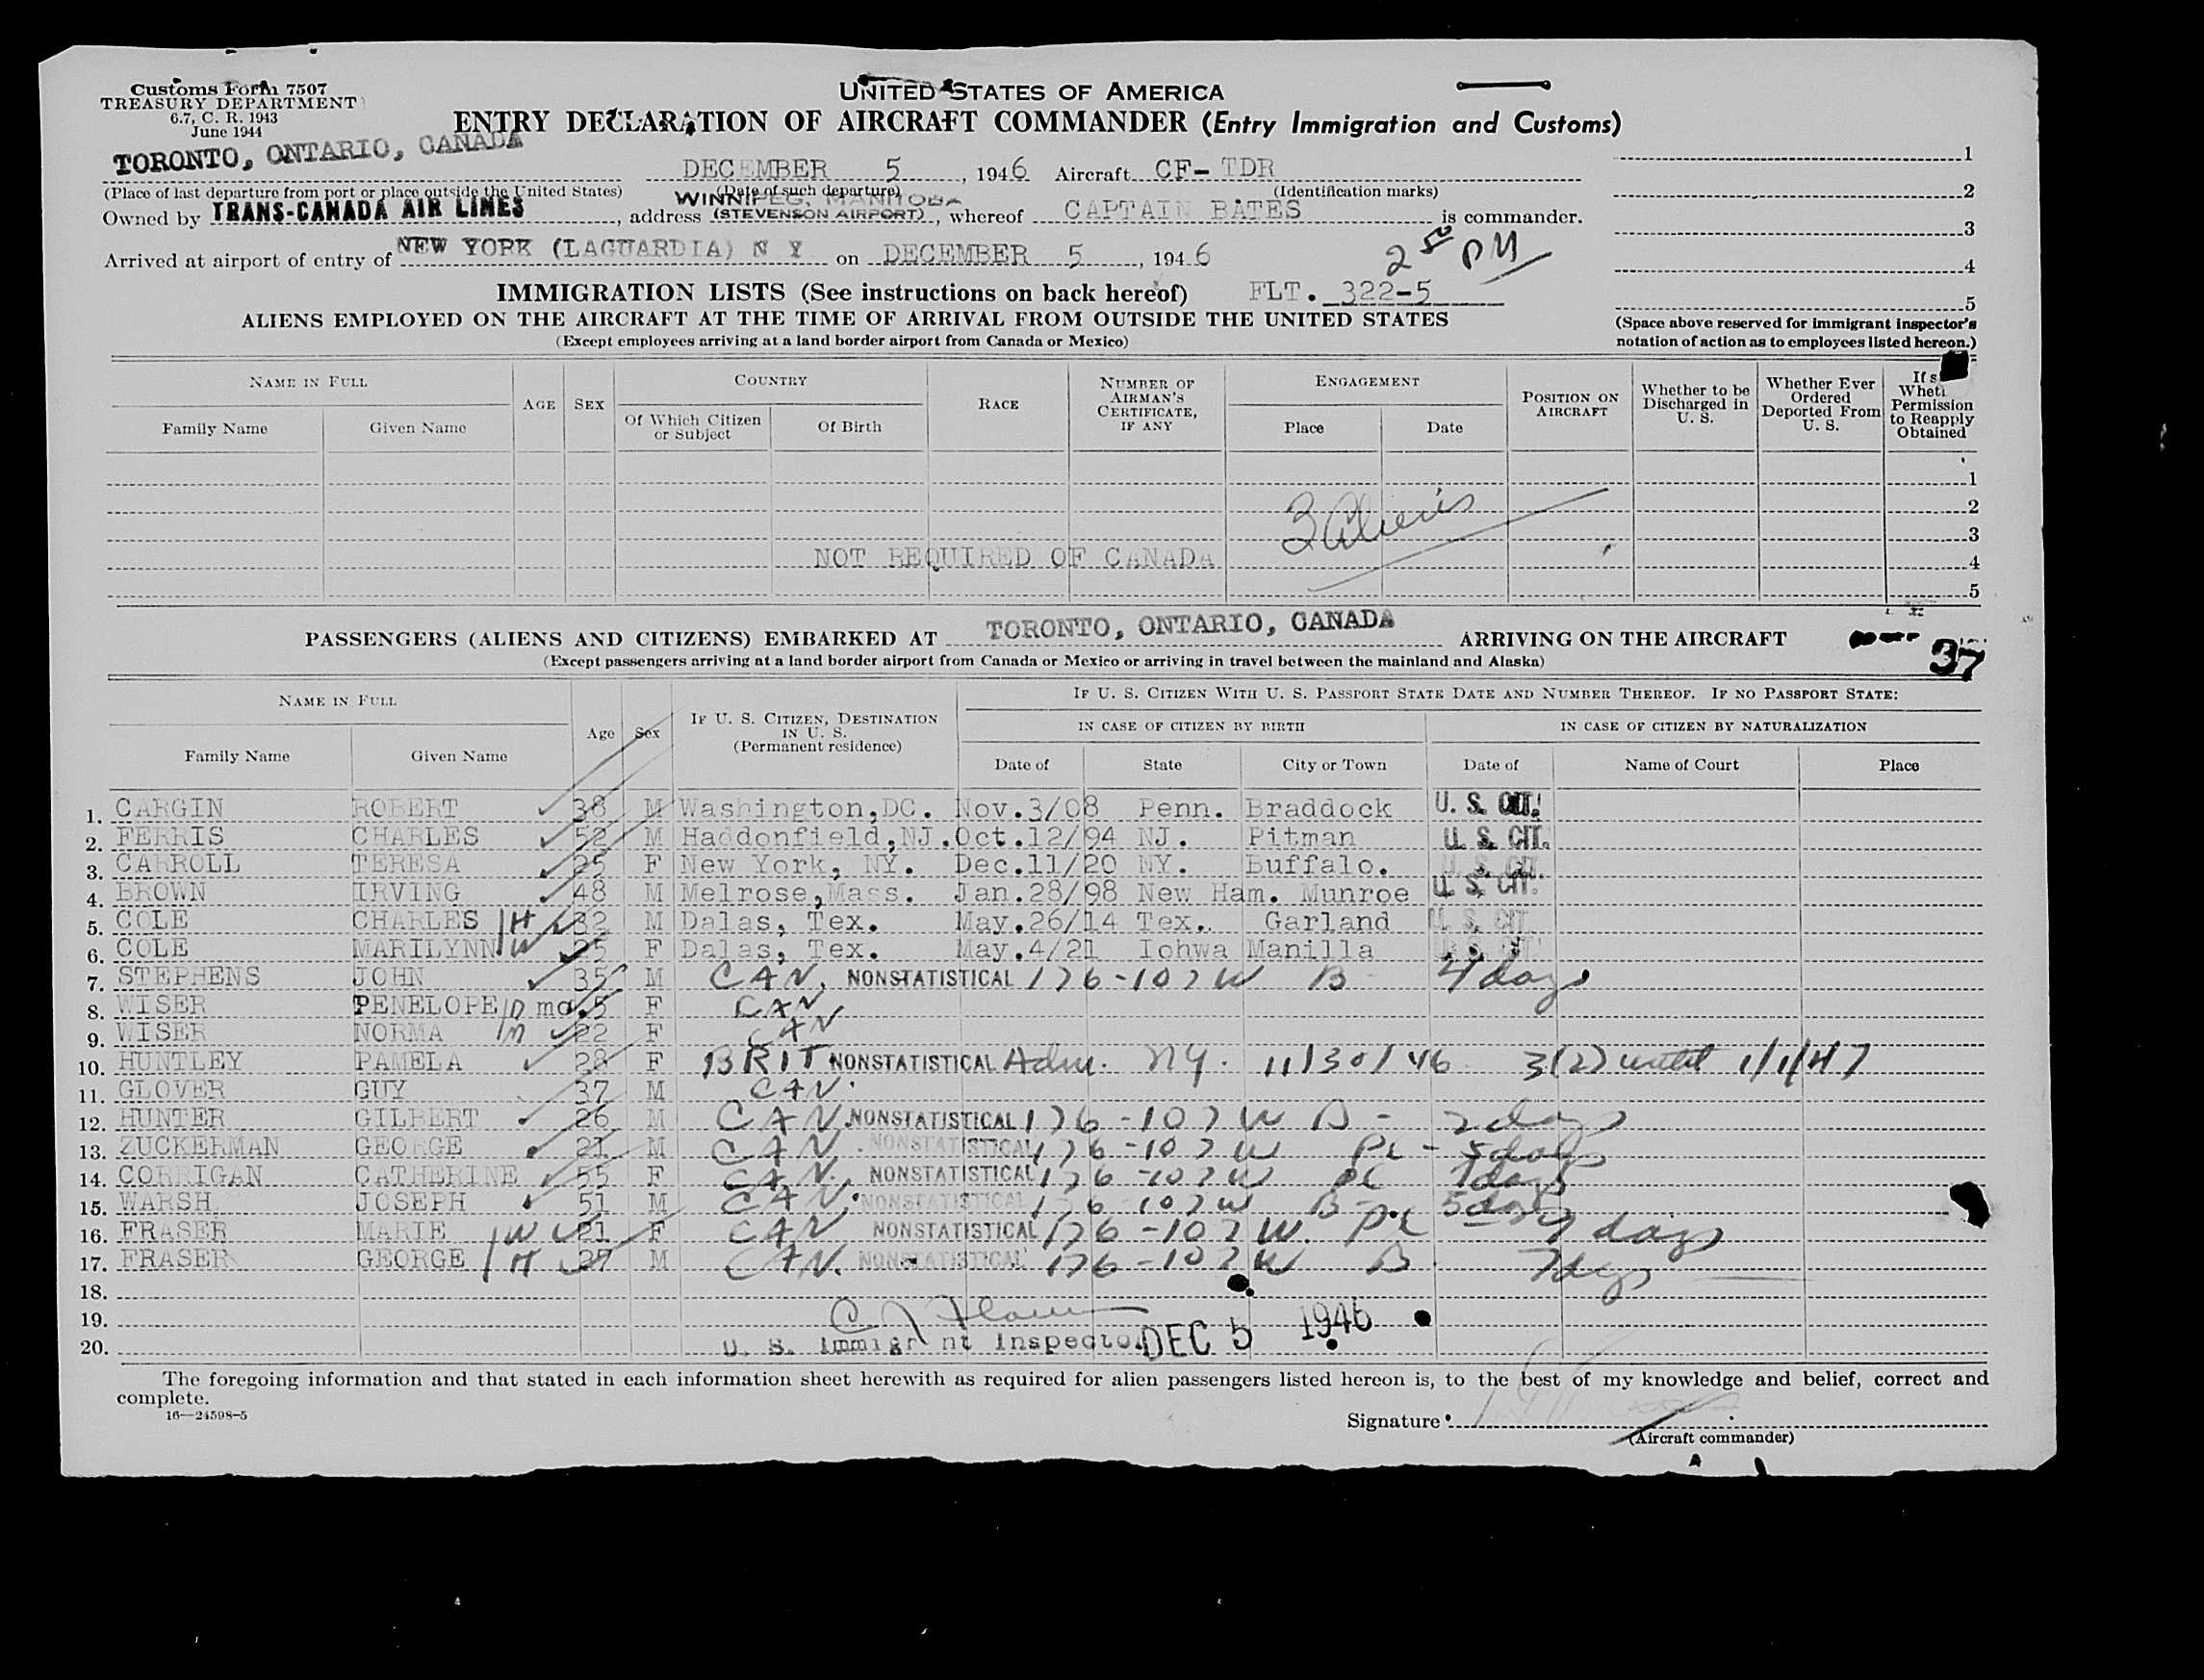 Customs Form 7507
TREASURY DEPARTMENT
6.7, C. R. 1943
June 1944
UNITED STATES OF AMERICA
ENTRY DECLARATION OF AIRCRAFT COMMANDER (Entry Immigration and Customs)
TORONTO, ONTARIO, CANADA DECEMBER 5, 1946 Aircraft CF-TDR
(Place of last departure from port or place outside the United States) (Date of such departure) (Identification marks)
WINNIPEG, MANITOBA
Owned by TRANS-CANADA AIR LINES, address (STEVENSON AIRPORT), whereof CAPTAIN BATES is commander.
Arrived at airport of entry of NEW YORK (LAGUARDIA) N Y on DECEMBER 5, 1946 2 50 PM
1
2
3
4
5
(Space above reserved for immigrant inspector's notation of action as to employees listed hereon.)
IMMIGRATION LISTS (See instructions on back hereof) FLT. 322-5
ALIENS EMPLOYED ON THE AIRCRAFT AT THE TIME OF ARRIVAL FROM OUTSIDE THE UNITED STATES
(Except employees arriving at a land border airport from Canada or Mexico)
NAME IN FULL
Family Name Given Name
AGE SEX
COUNTRY
Of Which Citizen or Subject Of Birth
RACE
NUMBER OF AIRMAN'S CERTIFICATE, IF ANY
ENGAGEMENT
Place Date
POSITION ON AIRCRAFT
Whether to be Discharged in U. S.
Whether Ever Ordered Deported From U. S.
If s
Permission to Reapply Obtained
1
2
3
4
5
3 Aliens
NOT REQUIRED OF CANADA
PASSENGERS (ALIENS AND CITIZENS) EMBARKED AT TORONTO, ONTARIO, CANADA ARRIVING ON THE AIRCRAFT
(Except passengers arriving at a land border airport from Canada or Mexico or arriving in travel between the mainland and Alaska)
37
NAME IN FULL
Family Name Given Name
Age Sex
IF U. S. CITIZEN, DESTINATION IN U. S. (Permanent residence)
IF U. S. CITIZEN WITH U. S. PASSPORT STATE DATE AND NUMBER THEREOF. IF NO PASSPORT STATE:
IN CASE OF CITIZEN BY BIRTH IN CASE OF CITIZEN BY NATURALIZATION
Date of State City or Town Date of Name of Court Place
1. CARGIN ROBERT 38 M Washington,DC. Nov.3/08 Penn. Braddock U. S. CIT.
2. FERRIS CHARLES 52 M Haddonfield,NJ. Oct.12/94 NJ. Pitman U. S. CIT.
3. CARROLL TERESA 25 F New York, NY. Dec.11/20 NY. Buffalo. U. S. CIT.
4. BROWN IRVING 48 M Melrose,Mass. Jan.28/98 New Ham. Munroe U. S. CIT.
5. COLE CHARLES H 32 M Dalas, Tex. May.26/14 Tex. Garland U. S. CIT
6. COLE MARILYNN W 25 F Dalas, Tex. May.4/21 Iohwa Manilla U. S. CIT
7. STEPHENS JOHN 35 M CAN. NONSTATISTICAL 176-107 W B 4 days
8. WISER PENELOPE mo.5 F CAN
9. WISER NORMA 22 F CAN
10. HUNTLEY PAMELA 28 F BRIT NONSTATISTICAL Adm. NY. 11/30/46 3(2) until 1/1/47
11. GLOVER GUY 37 M CAN
12. HUNTER GILBERT 26 M CAN. NONSTATISTICAL 176-107 W B - 2 days
13. ZUCKERMAN GEORGE 21 M CAN. NONSTATISTICAL 176-107 W PL - 5 days
14. CORRIGAN CATHERINE 55 F CAN. NONSTATISTICAL 176-107 W PL 7 days
15. WARSH JOSEPH 51 M CAN. NONSTATISTICAL 176-107 W B - 5 days
16. FRASER MARIE W 21 F CAN NONSTATISTICAL 176-107 W. PL 7 days
17. FRASER GEORGE H 27 M CAN. NONSTATISTICAL 176-107 W B 7 days
18.
19.
20. U. S. Immigrant Inspector DEC 5 1946
The foregoing information and that stated in each information sheet herewith as required for alien passengers listed hereon is, to the best of my knowledge and belief, correct and
complete.
16—24598-5
Signature
(Aircraft commander)